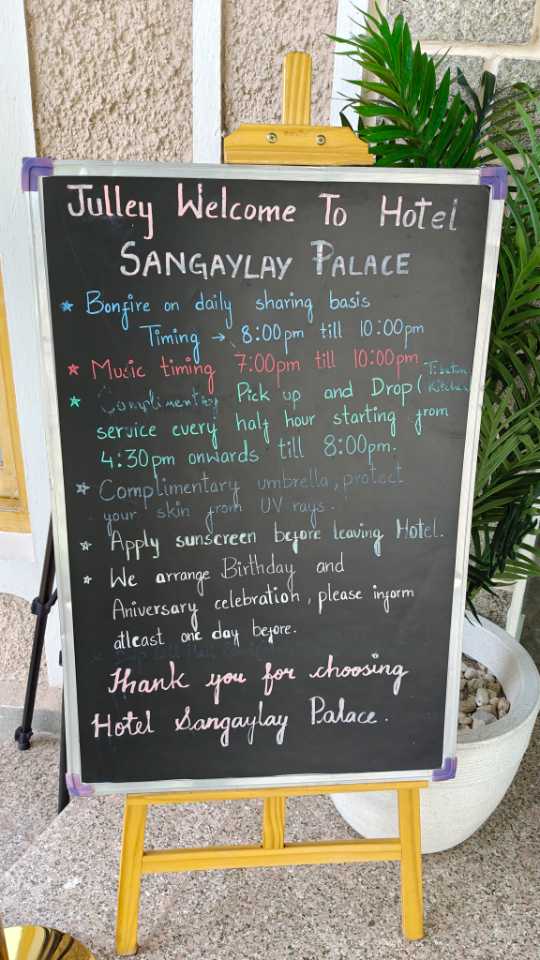 Julley Welcome To Hotel
SANGAYLAY PALACE
★ Bonfire on daily sharing basis
Timing → 8:00pm till 10:00pm
★ Music timing 7:00pm till 10:00pm
★ Complimentary Pick up and Drop (Tibetan Kitchen
service every half hour starting from
4:30pm onwards till 8:00pm.
☆ Complimentary umbrella, protect
your skin from UV rays.
☆ Apply sunscreen before leaving Hotel.
★ We arrange Birthday and
Aniversary celebration, please inform
atleast one day before.
Thank you for choosing
Hotel Sangaylay Palace.